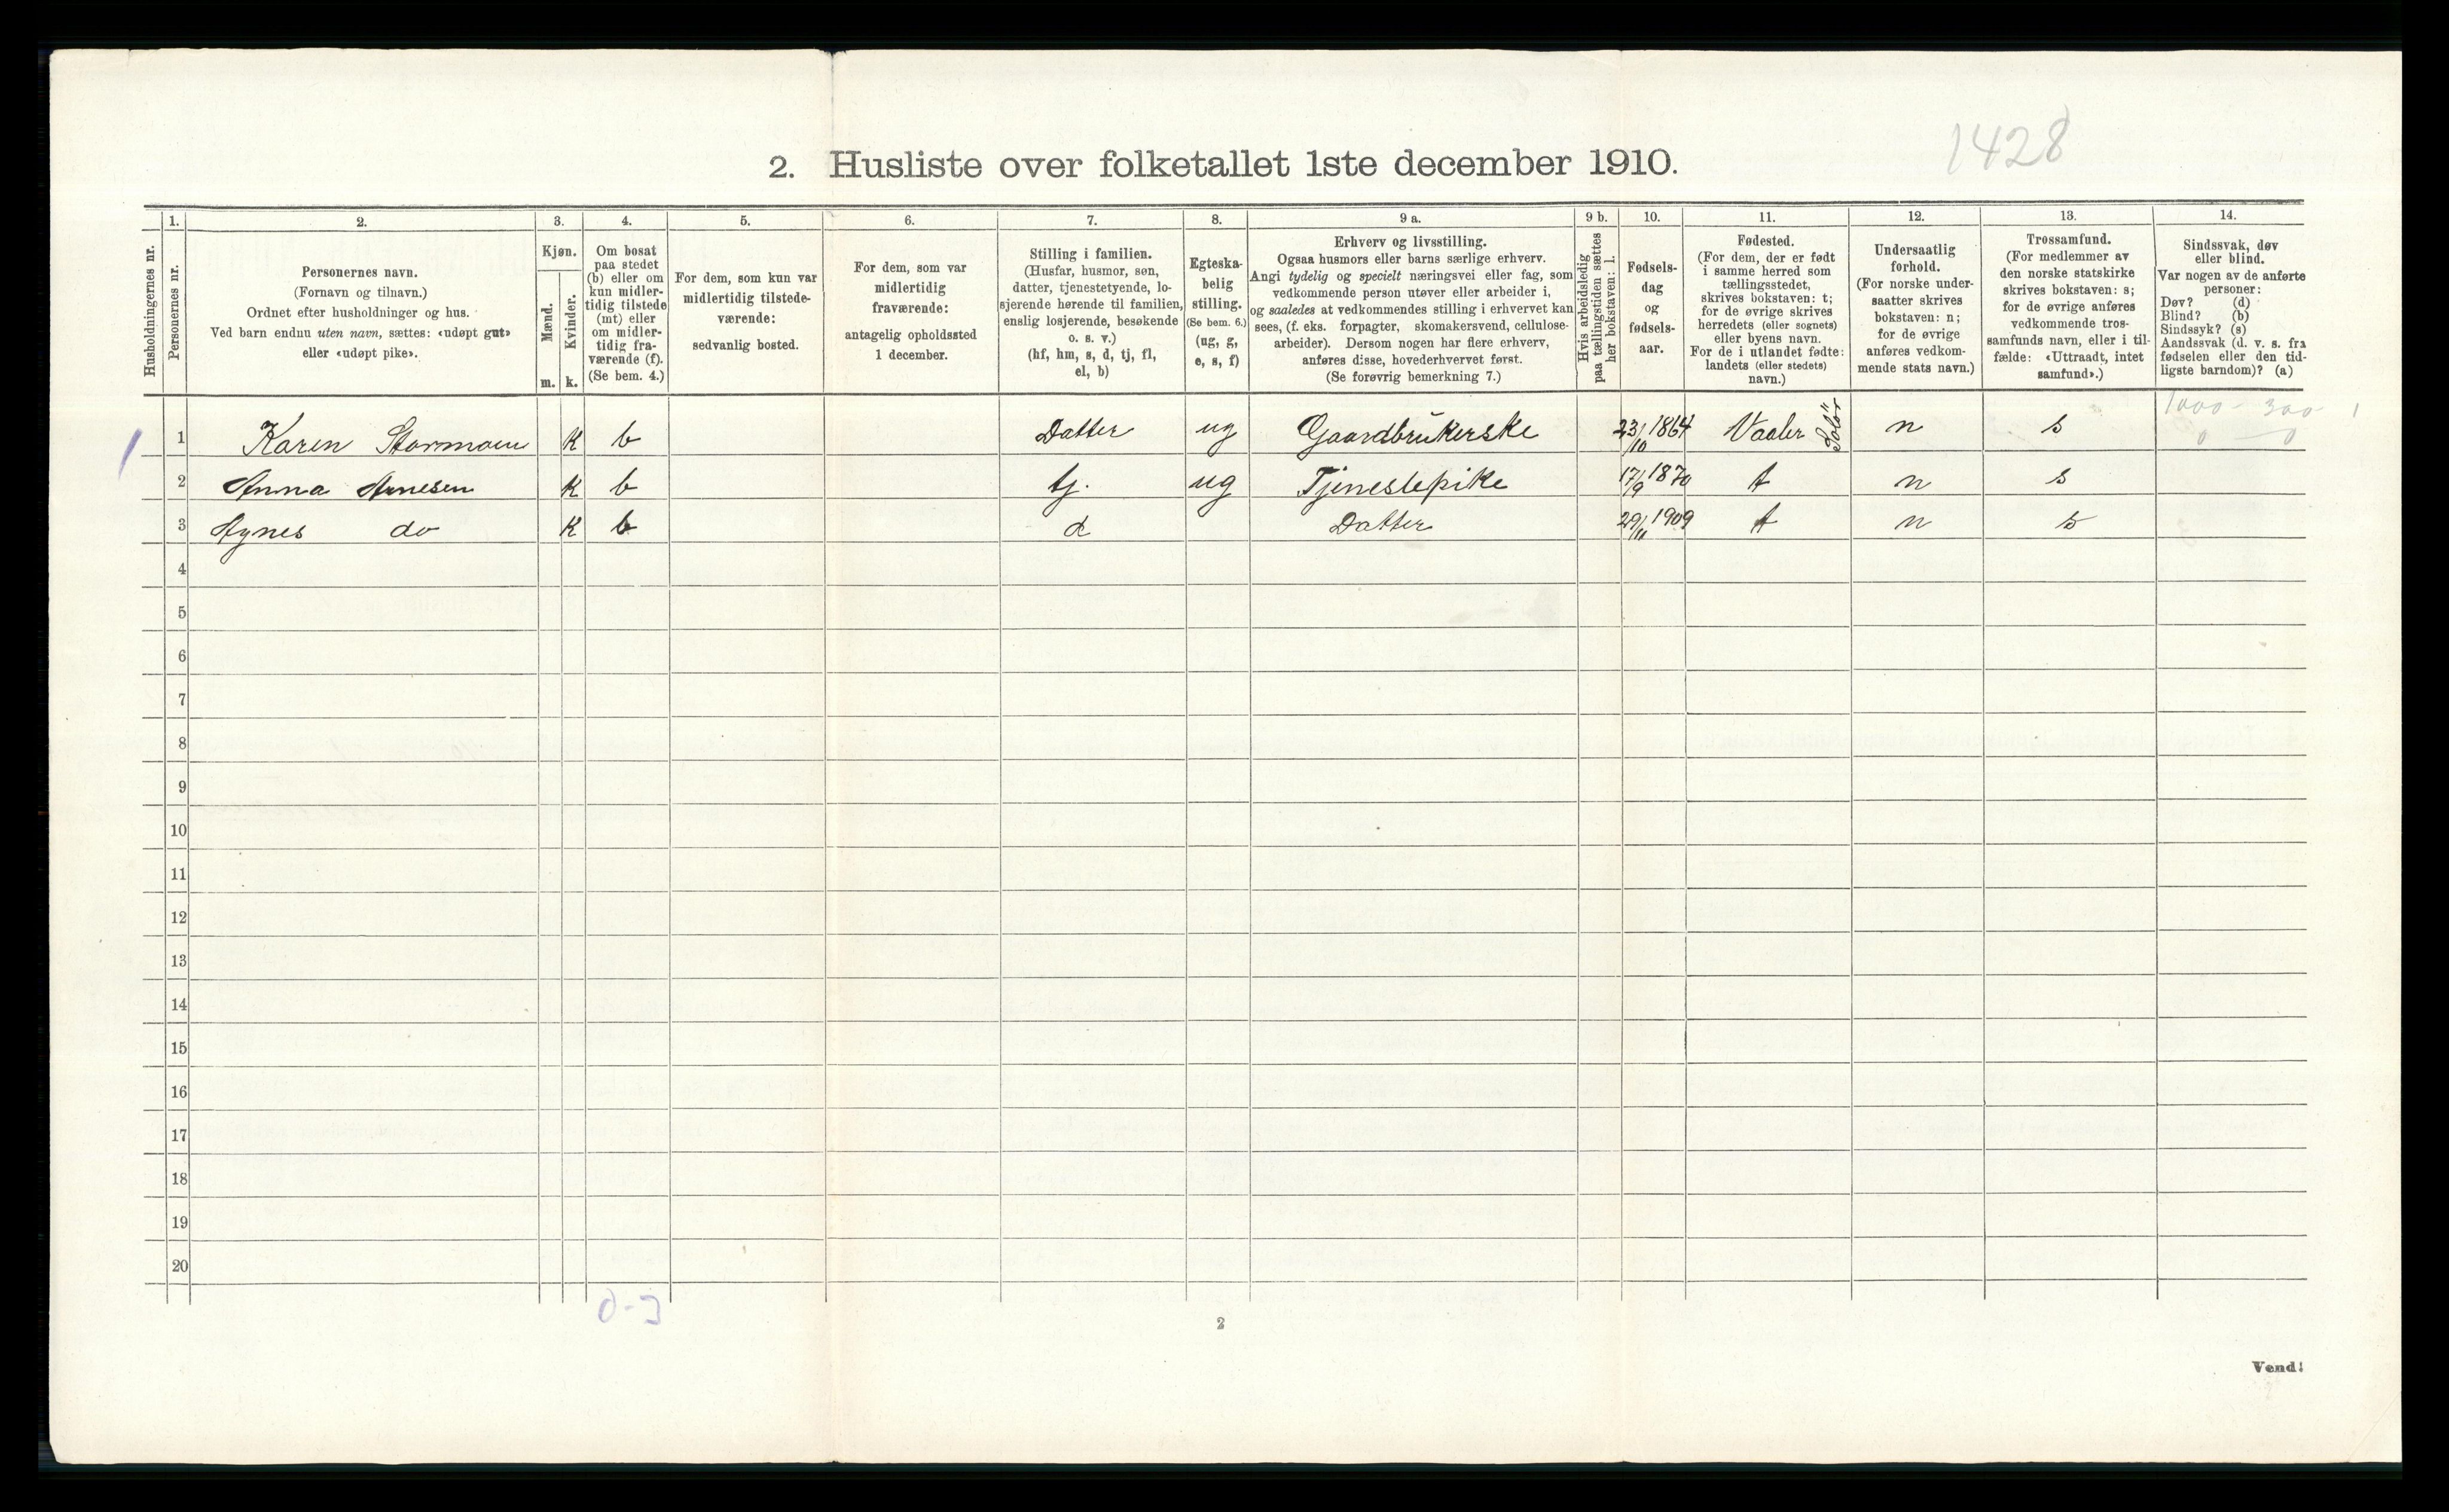 1428
2. Husliste over folketallet 1ste december 1910.
Husholdningernes nr.
1.
Personernes nr.
2.
Personernes navn.
(Fornavn og tilnavn.)
Ordnet efter husholdninger og hus.
Ved barn endnu uten navn, sættes: «udøpt gut»
eller «udøpt pike».
3.
Kjøn.
Mænd.
m.
Kvinder.
k.
4.
Om bosat
paa stedet
(b) eller om
kun midler-
tidig tilstede
(mt) eller
om midler-
tidig fra-
værende (f).
(Se bem. 4.)
5.
For dem, som kun var
midlertidig tilstede-
værende:
sedvanlig bosted.
6.
For dem, som var
midlertidig
fraværende:
antagelig opholdssted
1 december.
7.
Stilling i familien.
(Husfar, husmor, søn,
datter, tjenestetyende, lo-
sjerende hørende til familien,
enslig losjerende, besøkende
o. s. v.)
(hf, hm, s, d, tj, fl,
el, b)
8.
Egteska-
belig
stilling.
(Se bem. 6.)
(ug, g,
e, s, f)
9 a.
Erhverv og livsstilling.
Ogsaa husmors eller barns særlige erhverv.
Angi tydelig og specielt næringsvei eller fag, som
vedkommende person utøver eller arbeider i,
og saaledes at vedkommendes stilling i erhvervet kan
sees, (f. eks. forpagter, skomakersvend, cellulose-
arbeider). Dersom nogen har flere erhverv,
anføres disse, hovederhvervet først.
(Se forøvrig bemerkning 7.)
9 b.
Hvis arbeidsledig
paa tællingstiden sættes
her bokstaven: l.
10.
Fødsels-
dag
og
fødsels-
aar.
11.
Fødested.
(For dem, der er født
i samme herred som
tællingsstedet,
skrives bokstaven: t;
for de øvrige skrives
herredets (eller sognets)
eller byens navn.
For de i utlandet fødte:
landets (eller stedets)
navn.)
12.
Undersaatlig
forhold.
(For norske under-
saatter skrives
bokstaven: n;
for de øvrige
anføres vedkom-
mende stats navn.)
13.
Trossamfund.
(For medlemmer av
den norske statskirke
skrives bokstaven: s;
for de øvrige anføres
vedkommende tros-
samfunds navn, eller i til-
fælde: «Uttraadt, intet
samfund».)
14.
Sindssvak, døv
eller blind.
Var nogen av de anførte
personer:
Døv? (d)
Blind? (b)
Sindssyk? (s)
Aandssvak (d. v. s. fra
fødselen eller den tid-
ligste barndom)? (a)
1000 - 300 1
0 — 0
1 1 Karen Stormoen K b Datter ug Gaardbrukerske 23/10 1864 Vaaler Solör n s
2 Anna Arnesen K b tj. ug Tjenestepike 17/9 1870 t n s
3 Agnes do K b d Datter 29/11 1909 t n s
4
5
6
7
8
9
10
11
12
13
14
15
16
17
18
19
20
0-3
2
Vend!